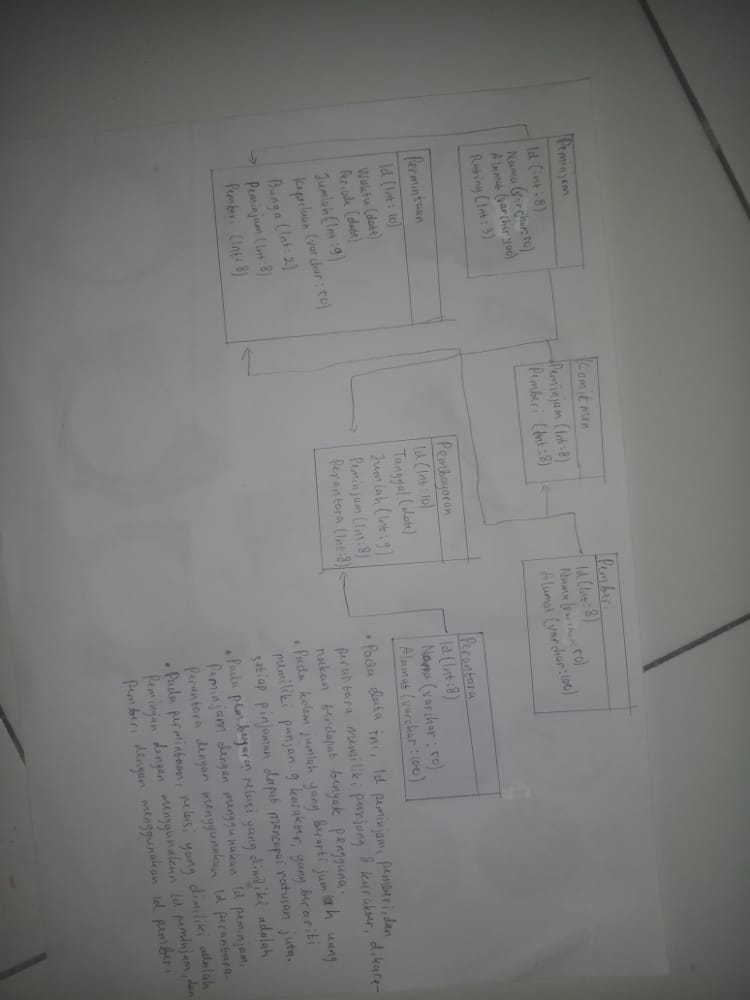 Peminjam
Id (int : 8)
Nama (varchar : 50)
Alamat (varchar 100)
Rating (Int : 3)
Komitmen
Peminjam (Int : 8)
Pemberi (Int : 8)
Pemberi
Id (Int : 8)
Nama (varchar : 50)
Alamat (varchar : 100)
Permintaan
Id (Int : 10)
Waktu (date)
Periode (date)
Jumlah (Int : 9)
Keperluan (varchar : 50)
Bunga (Int : 2)
Peminjam (Int : 8)
Pemberi (Int : 8)
Pembayaran
Id (Int : 10)
Tanggal (date)
Jumlah (Int : 9)
Peminjam (Int : 8)
Perantara (Int : 8)
Perantara
Id (Int : 8)
Nama (varchar : 50)
Alamat (varchar : 100)
• Pada data ini, Id peminjam, pemberi, dan
perantara memiliki panjang 8 karakter, dikare-
nakan terdapat banyak pengguna.
• Pada kolom jumlah yang berarti jumlah uang
memiliki panjan 9 karakter, yang berariti
setiap pinjaman dapat mencapai ratusan juta.
• Pada pembayaran relasi yang dimiliki adalah
Peminjam dengan menggunakan Id peminjam,
Perantara dengan menggunakan Id perantara.
• Pada permintaan, relasi yang dimiliki adalah
Peminjan dengan menggunakan Id peminjam, dan
Pemberi dengan menggunakan Id pemberi